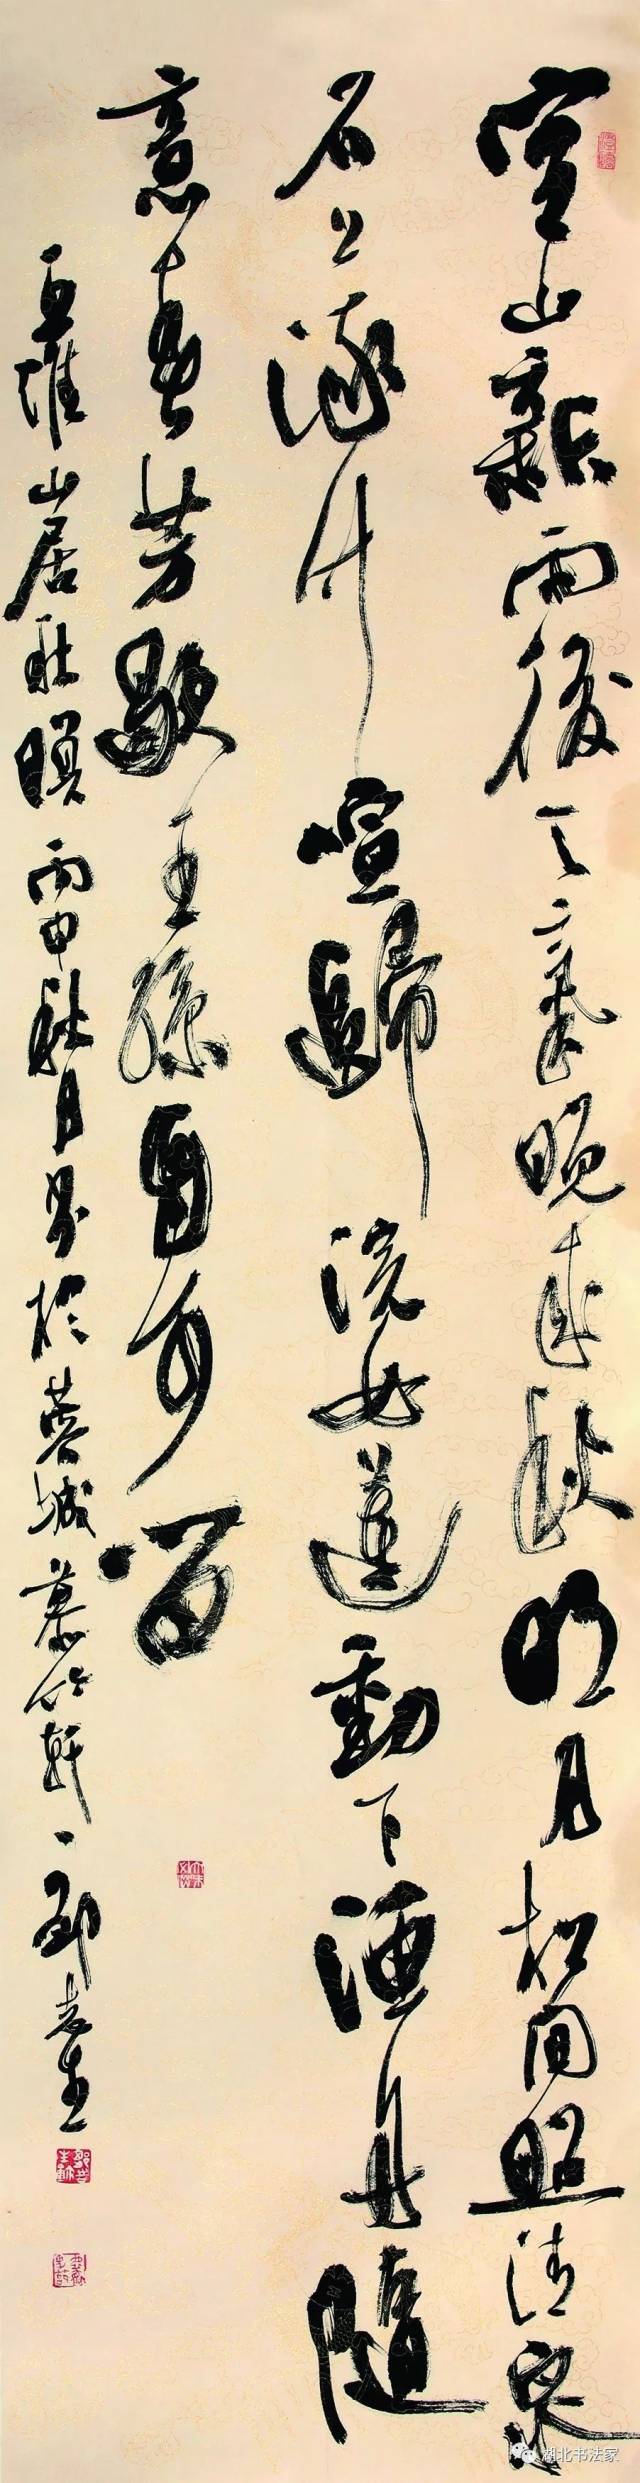 空山新雨後天氣晚來秋明月松間照清泉
石上流竹喧歸浣女蓮動下漁舟隨
意春芳歇王孫自可留
王維山居秋暝丙申秋月書於蓉城慕竹軒郭志生
湖北书法家